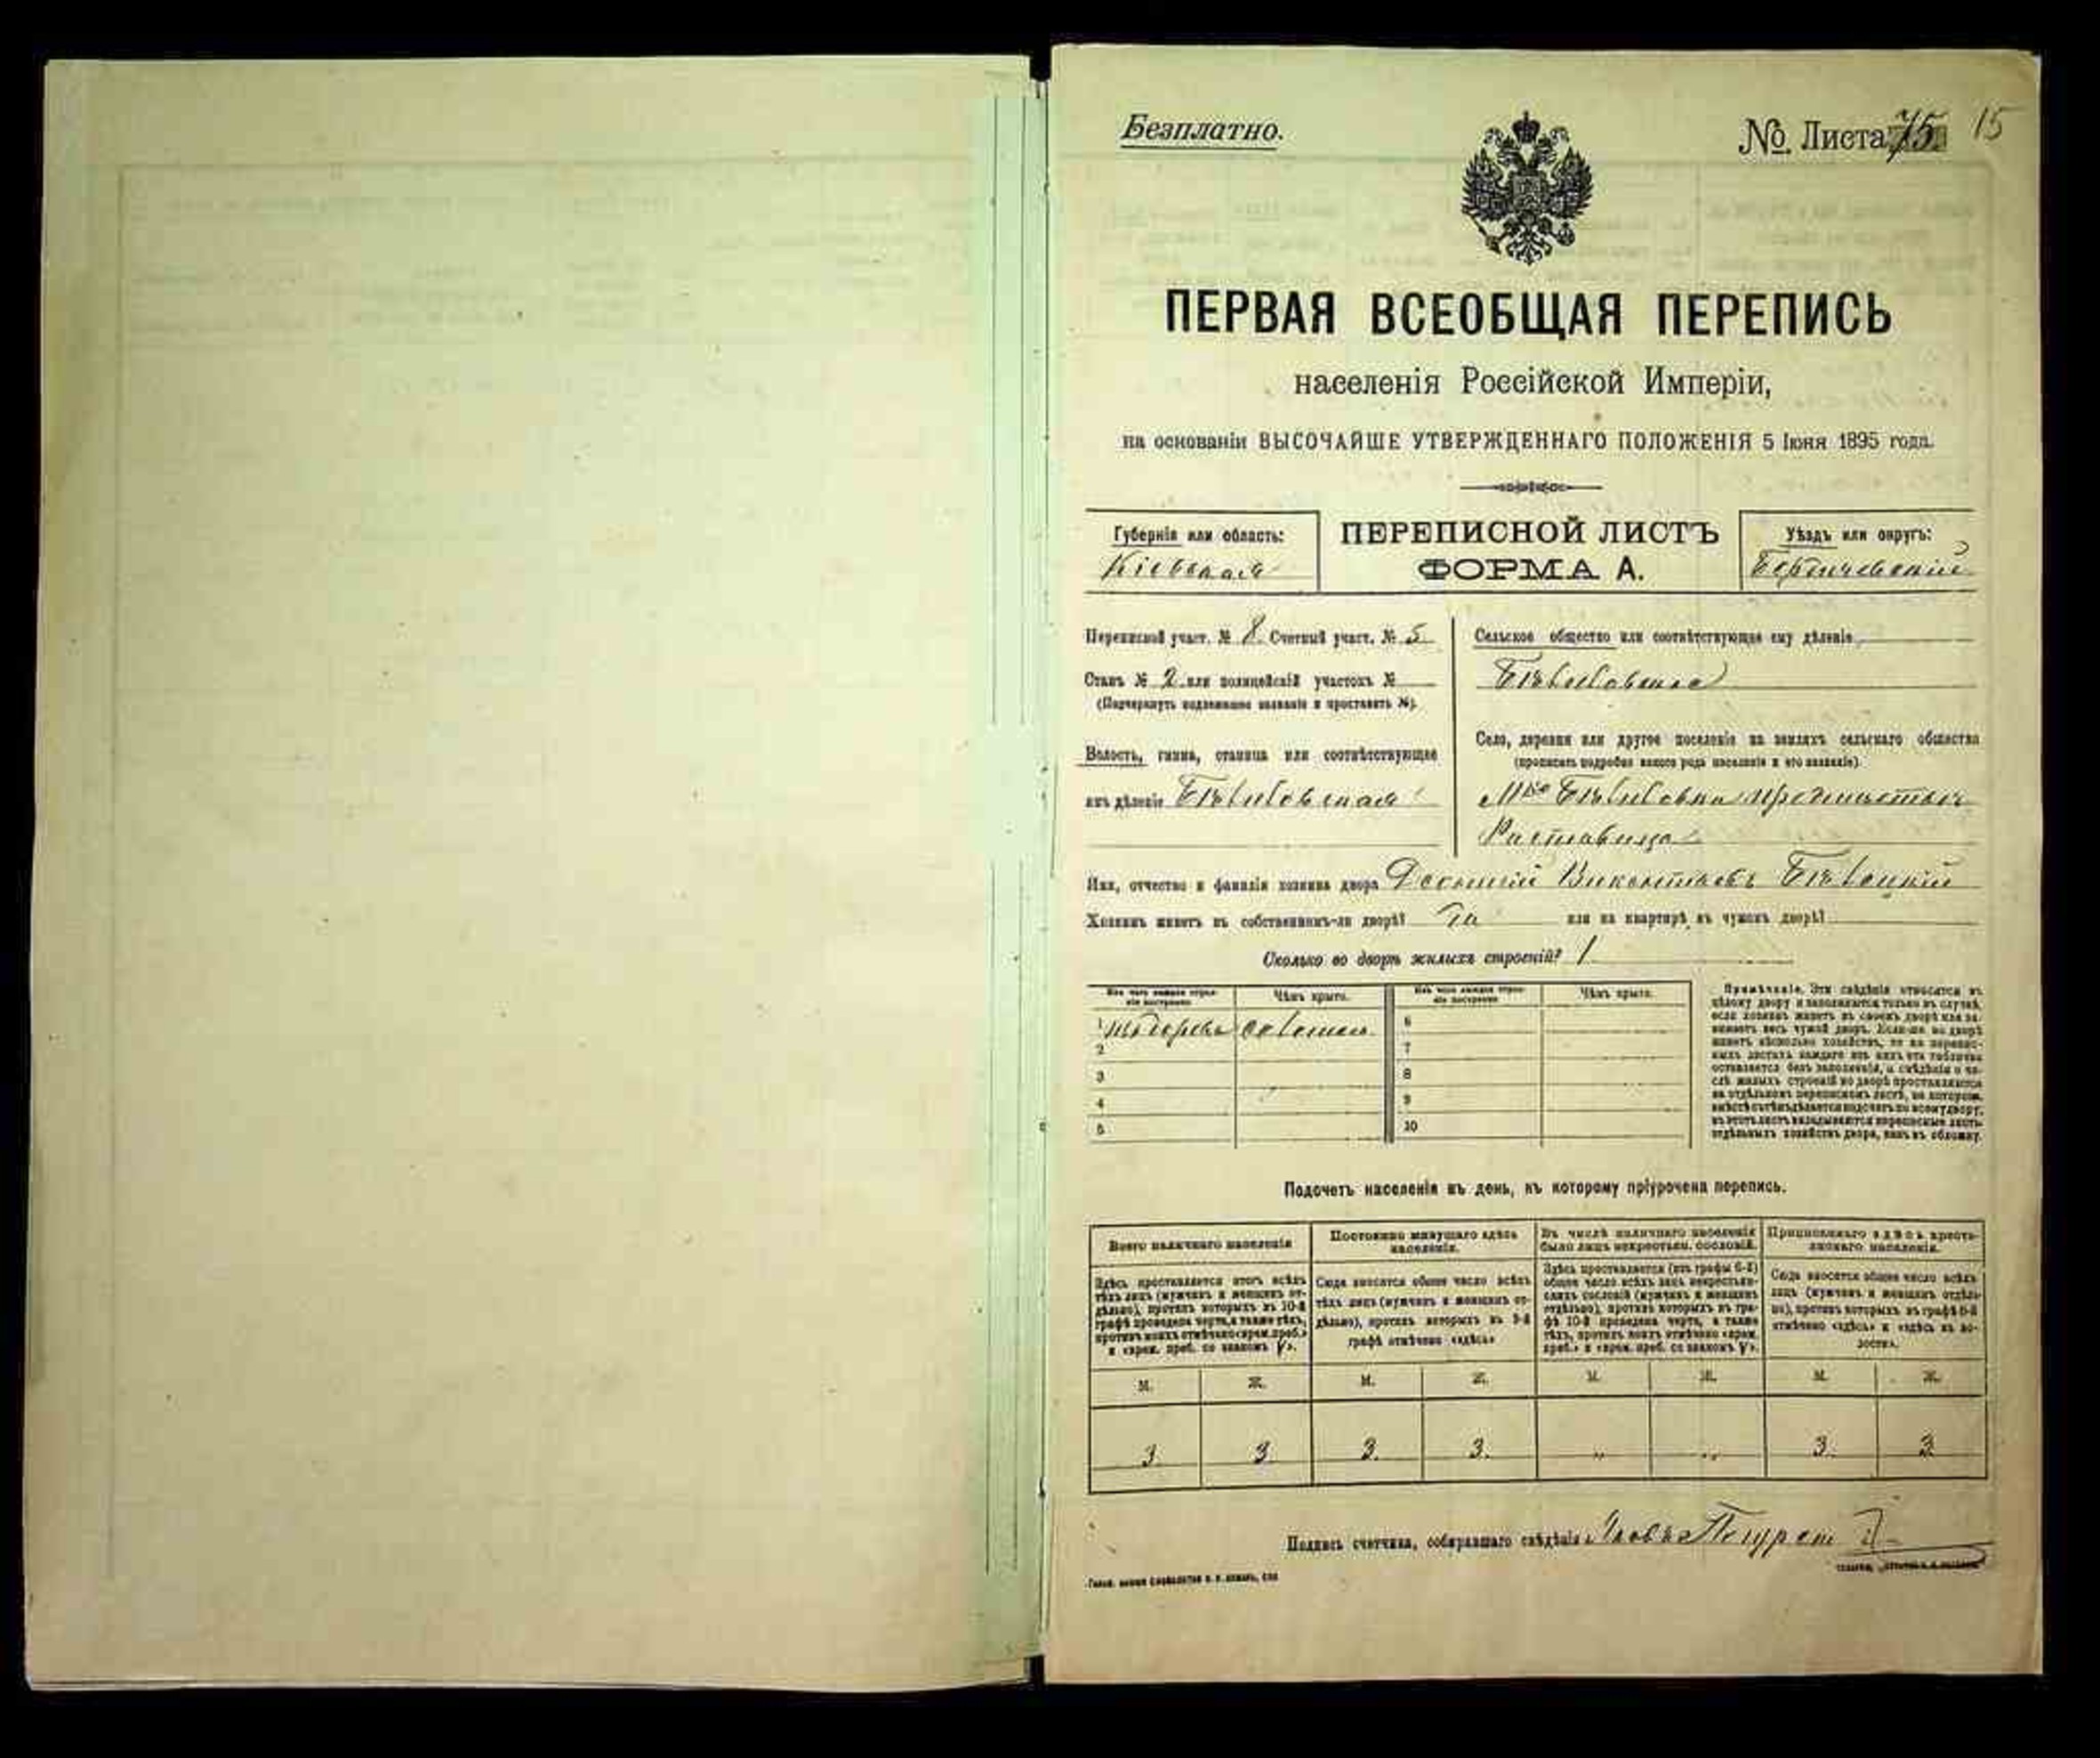 Безплатно.
№ Листа 15. 15
ПЕРВАЯ ВСЕОБЩАЯ ПЕРЕПИСЬ
населенія Россійской Имперіи,
на основаніи ВЫСОЧАЙШЕ УТВЕРЖДЕННАГО ПОЛОЖЕНІЯ 5 Іюня 1895 года.
Губернія или область:
Кіевская
ПЕРЕПИСНОЙ ЛИСТЪ
ФОРМА А.
Уѣздъ или округъ:
Бердичевскій
Переписной участ. № 8. Счетный участ. № 5
Станъ № 2 или полицейскій участокъ №
(Подчеркнуть подлежащее названіе и проставить №).
Волость, гмина, станица или соотвѣтствующее
имъ дѣленіе Бѣлиловская
Сельское общество или соотвѣтствующее ему дѣленіе
Бѣлиловское
Село, деревня или другое поселеніе на земляхъ сельскаго общества
(прописать подробно какого рода поселеніе и его названіе).
Мко Бѣлиловка предмѣстье
Раставица
Имя, отчество и фамилія хозяина двора Викентьевъ
Хозяинъ живетъ въ собственномъ-ли дворѣ? Да или на квартирѣ въ чужомъ дворѣ?
Сколько во дворѣ жилыхъ строеній? 1
Изъ чего каждое строе-
ніе построено. Чѣмъ крыто. Изъ чего каждое строе-
ніе построено. Чѣмъ крыто.
1 соломою 6
2 7
3 8
4 9
5 10
Примѣчаніе. Эти свѣдѣнія относятся къ
цѣлому двору и заполняются только въ случаѣ,
если хозяинъ живетъ въ своемъ дворѣ или за-
нимаетъ весь чужой дворъ. Если-же во дворѣ
живетъ нѣсколько хозяйствъ, то на перепис-
ныхъ листахъ каждаго изъ нихъ эта табличка
оставляется безъ заполненія, а свѣдѣнія о чи-
слѣ жилыхъ строеній во дворѣ проставляются
на отдѣльномъ переписномъ листѣ, на которомъ
вмѣстѣ съ тѣмъ дѣлается подсчетъ по всему двору;
въ этотъ листъ вкладываются переписные листы
отдѣльныхъ хозяйствъ двора, какъ въ обложку.
Подсчетъ населенія въ день, къ которому пріурочена перепись.
Всего наличнаго населенія
Здѣсь проставляется итогъ всѣхъ
тѣхъ лицъ (мужчинъ и женщинъ от-
дѣльно), противъ которыхъ въ 10-й
графѣ проведена черта, а также тѣхъ,
противъ коихъ отмѣчено «врем. преб.»
и «врем. преб. со знакомъ V».
Постоянно живущаго здѣсь
населенія.
Сюда вносится общее число всѣхъ
тѣхъ лицъ (мужчинъ и женщинъ от-
дѣльно), противъ которыхъ въ 9-й
графѣ отмѣчено «здѣсь»
Въ числѣ наличнаго населенія
было лицъ некрестьян. сословій.
Здѣсь проставляется (изъ графы 6-й)
общее число всѣхъ лицъ некрестьян-
скихъ сословій (мужчинъ и женщинъ
отдѣльно), противъ которыхъ въ гра-
фѣ 10-й проведена черта, а также
тѣхъ, противъ коихъ отмѣчено «врем.
преб.» и «врем. преб. со знакомъ V».
Приписаннаго здѣсь кресть-
янскаго населенія.
Сюда вносится общее число всѣхъ
лицъ (мужчинъ и женщинъ отдѣль-
но), противъ которыхъ въ графѣ 8-й
отмѣчено «здѣсь» и «здѣсь въ во-
лости».
М. Ж. М. Ж. М. Ж. М. Ж.
3. 3 3. 3. „ „ 3. 3
Подпись счетчика, собиравшаго свѣдѣнія